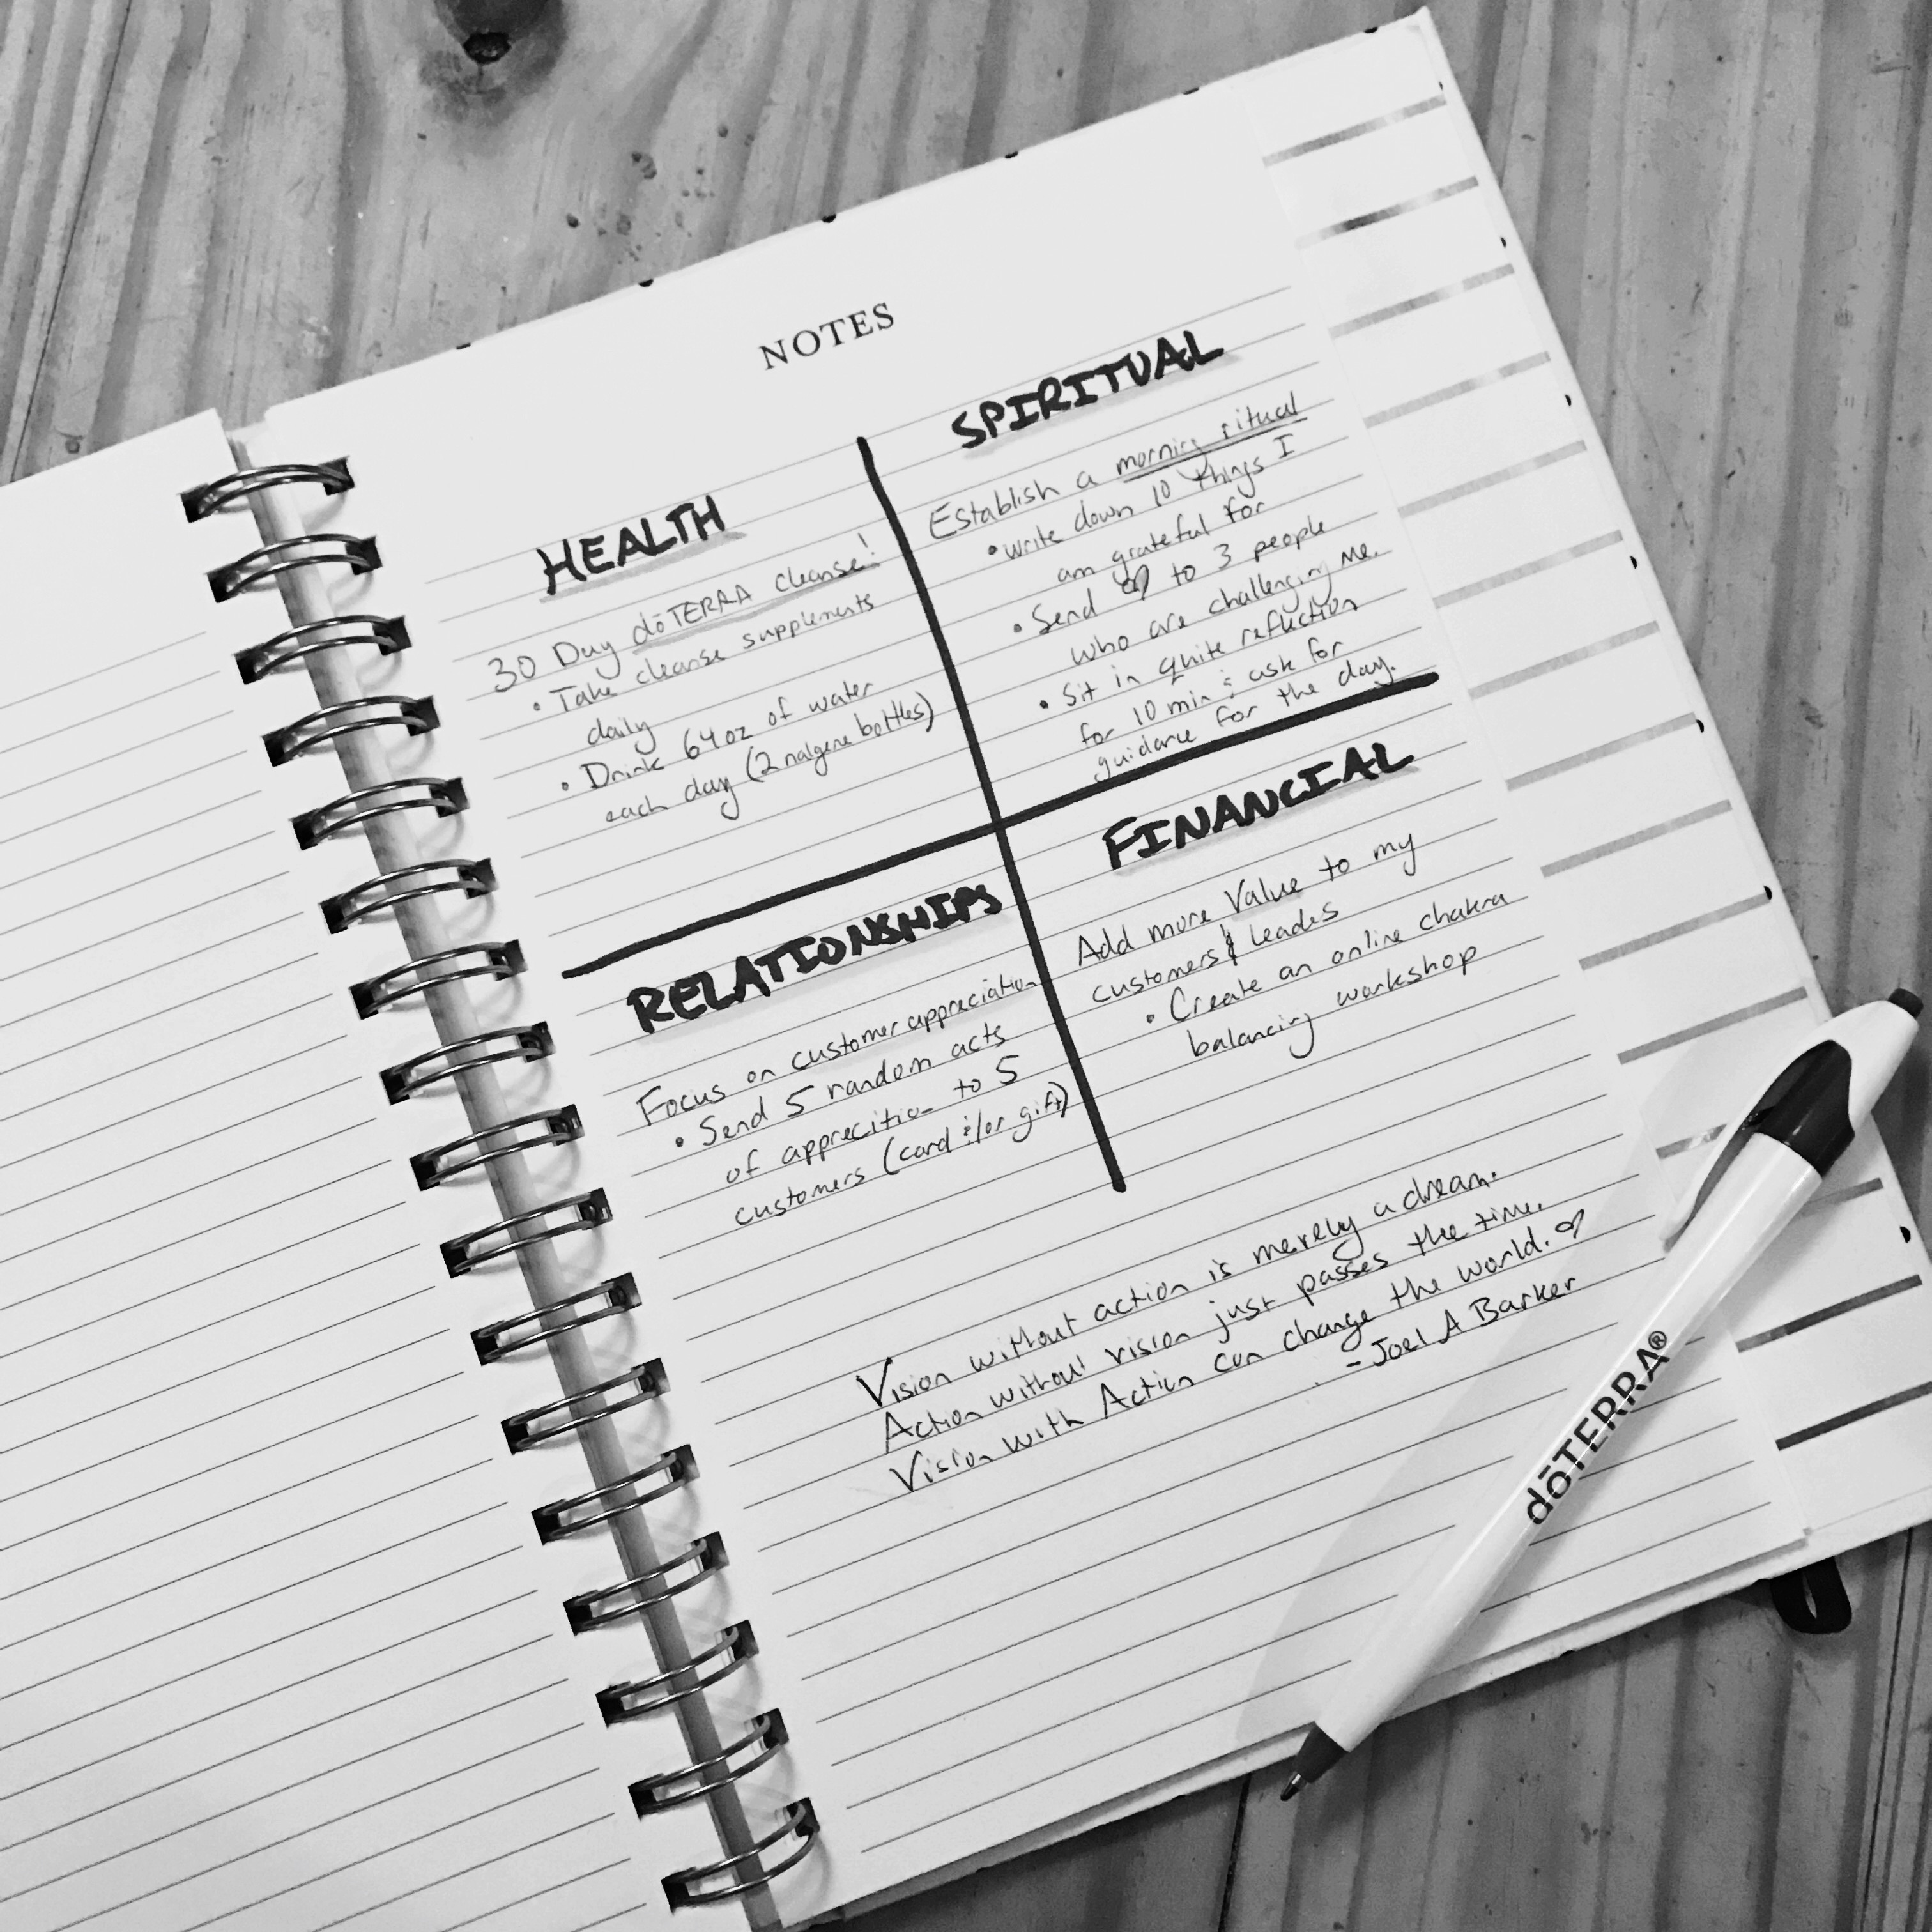 NOTES
HEALTH
30 Day dōTERRA cleanse!
• Take cleanse supplements
daily
• Drink 64oz of water
each day (2 nalgene bottles)
SPIRITUAL
Establish a morning ritual
• write down 10 things I
am grateful for
• Send ♡ to 3 people
who are challenging me.
• Sit in quite reflection
for 10 min & ask for
guidance for the day.
RELATIONSHIPS
Focus on customer appreciation
• Send 5 random acts
of apprecition to 5
customers (card &/or gift)
FINANCIAL
Add more Value to my
customers & leades
• Create an online chakra
balancing workshop
Vision without action is merely a dream.
Action without vision just passes the time.
Vision with Action can change the world. ♡
- Joel A Barker
dōTERRA®